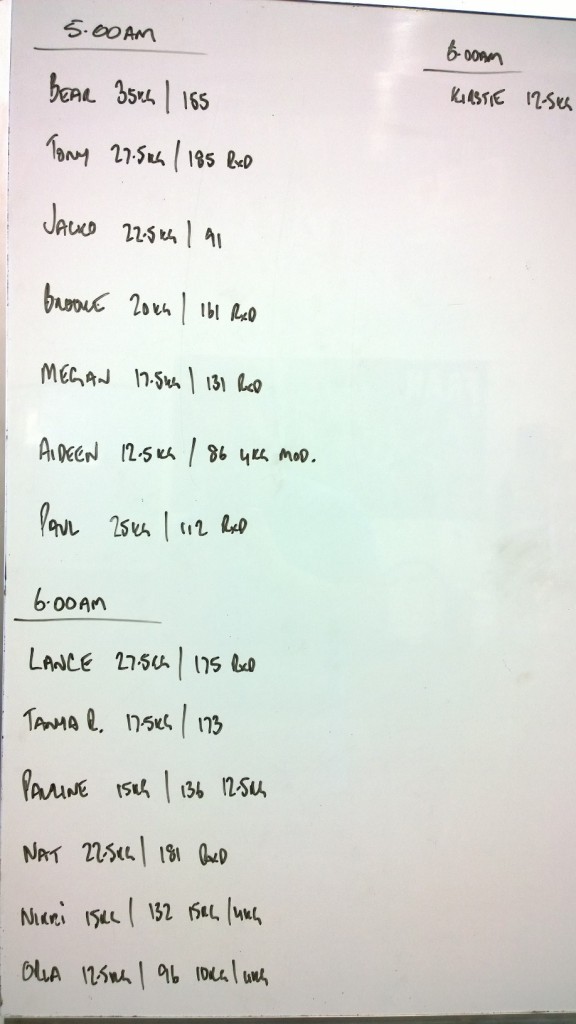 5.00AM
BEAR 35KG | 165
TONY 27.5KG | 185 RXD
JACKO 22.5KG | 91
BROOKE 20KG | 161 RXD
MEGAN 17.5KG | 131 RXD
AIDEEN 12.5KG / 86 4KG MOD.
PAUL 25KG | 112 RXD
6.00AM
LANCE 27.5KG | 175 RXD
TANYA R. 17.5KG | 173
PAULINE 15KG | 136 12.5KG
NAT 22.5KG | 181 RXD
NIKKi 15KG | 132 15KG/4KG
ORLA 12.5KG | 96 10KG/4KG
6.00AM
KIRSTIE 12.5KG